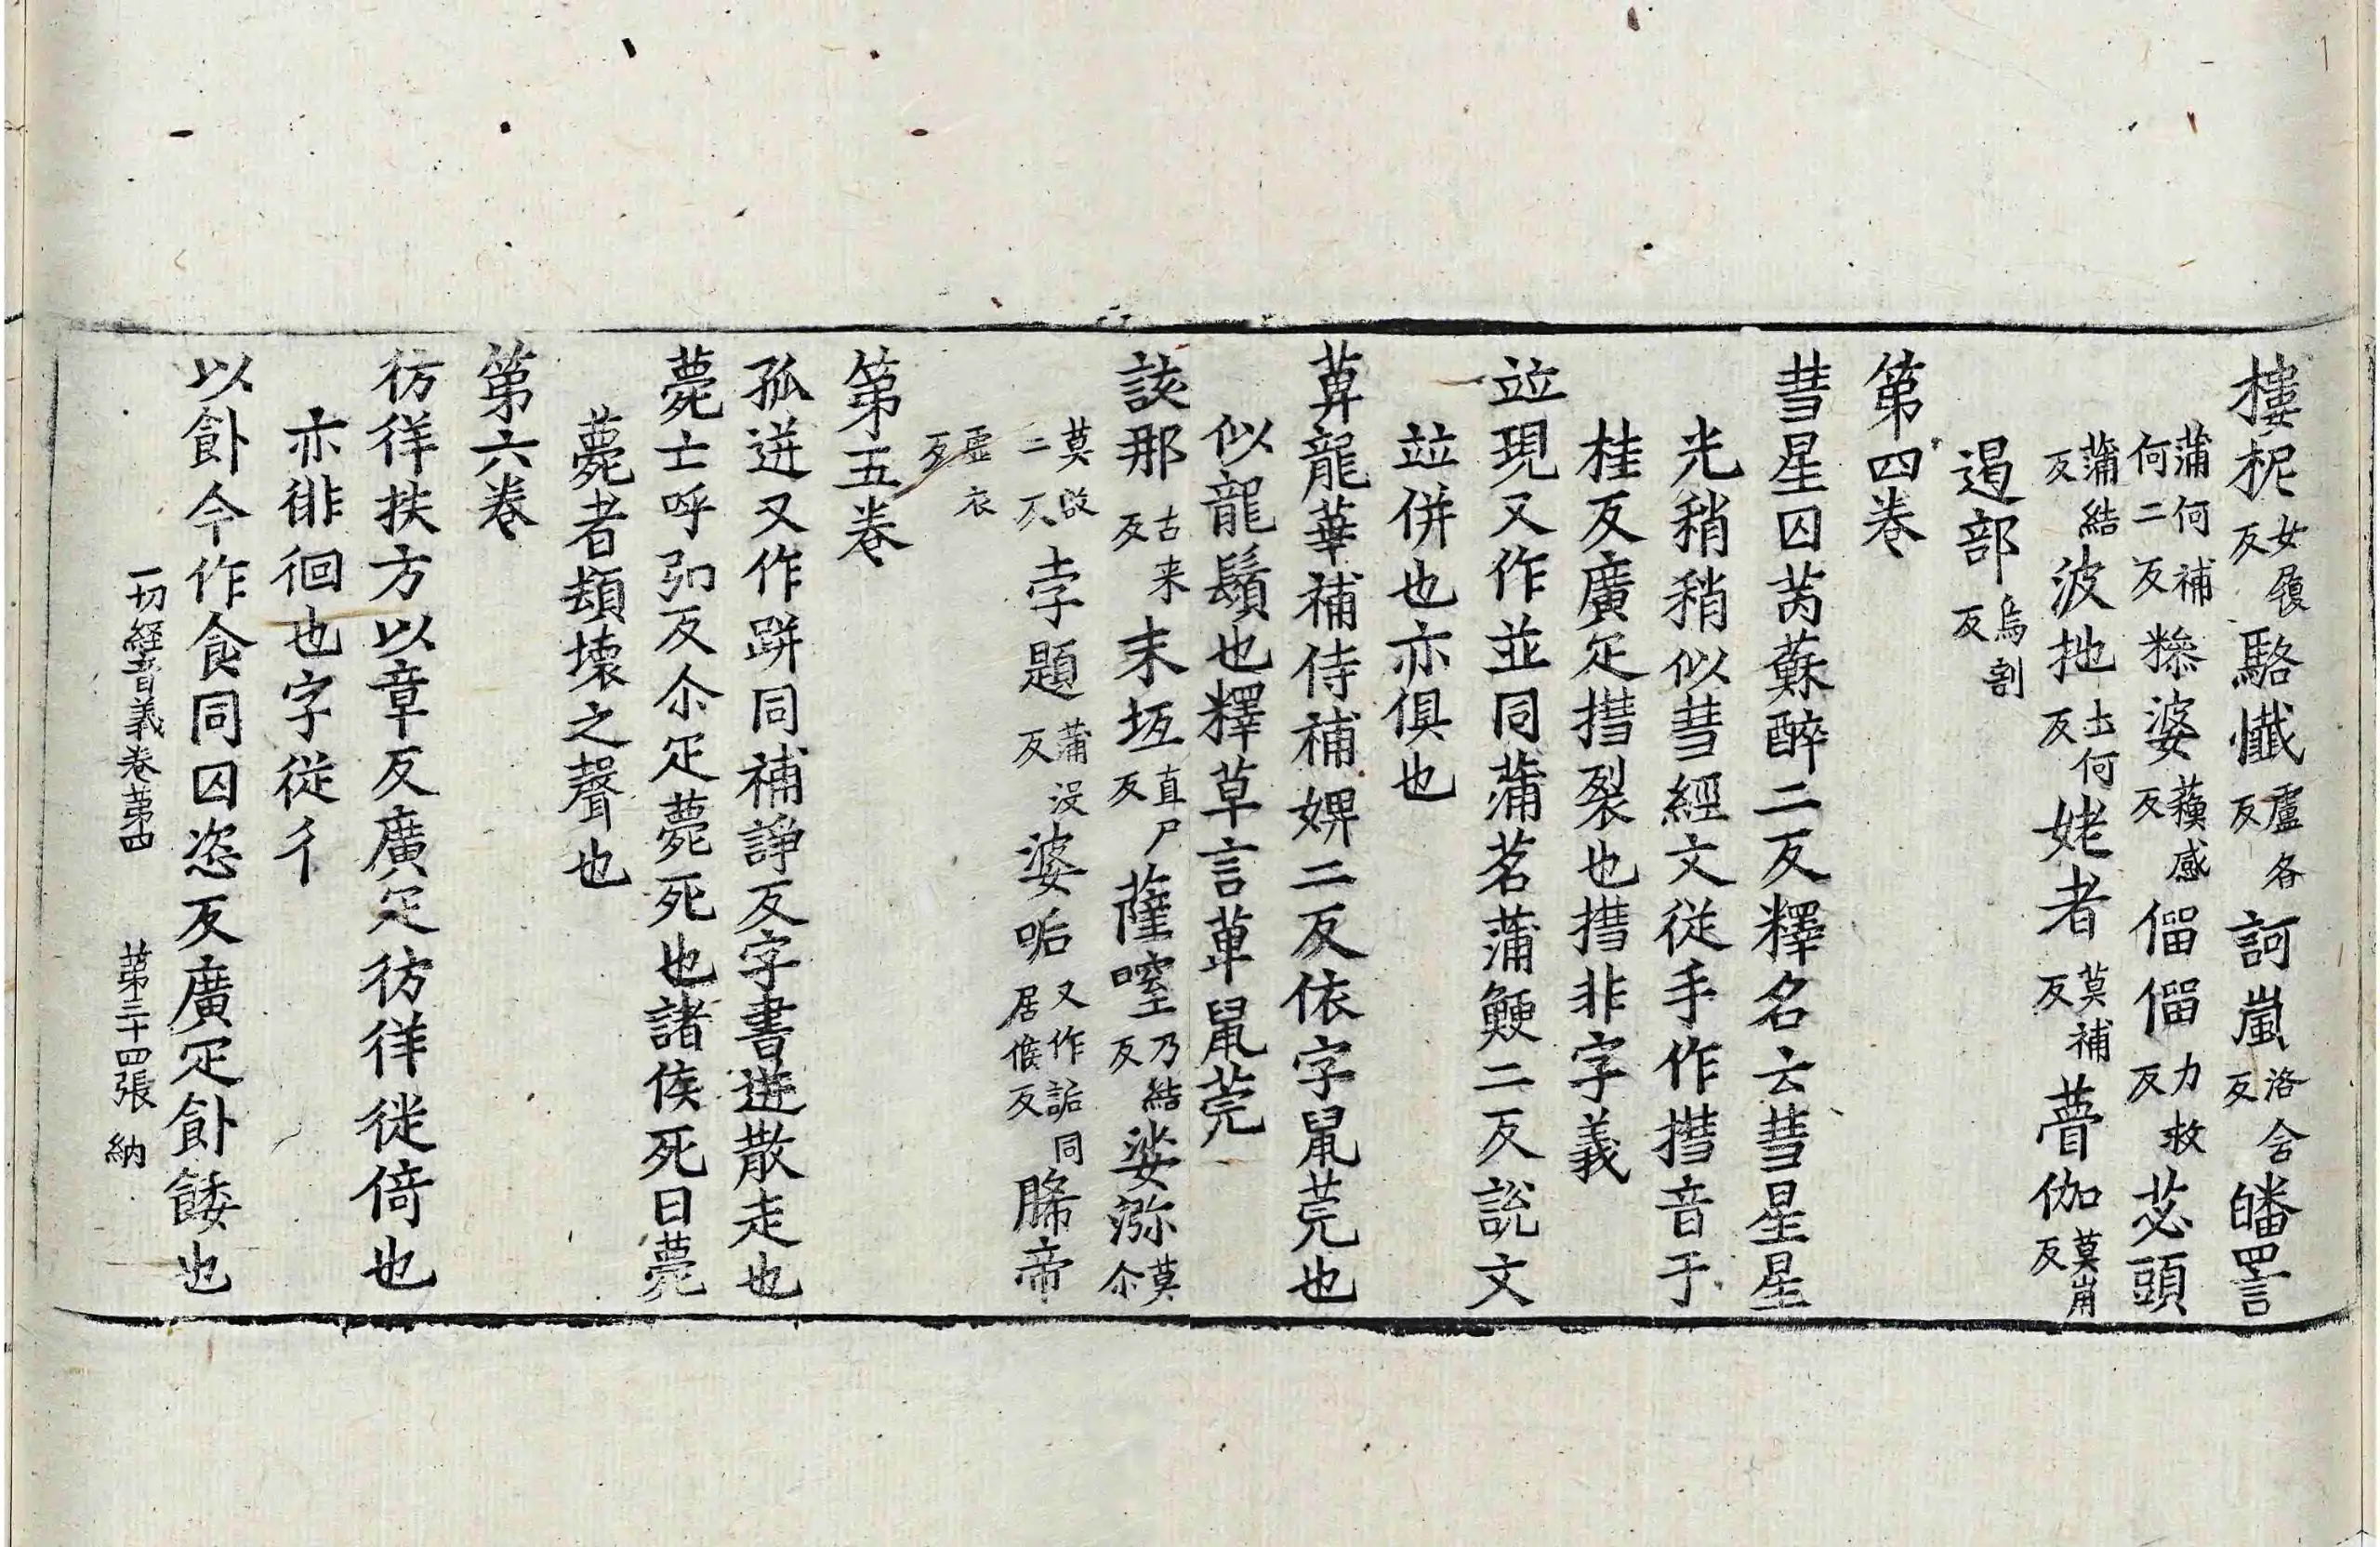 樓柅女履反駱懺盧各反訶嵐洛含反皤詈
蒲何補何二反糝婆蘓感反僠僠力救反苾頭
蒲結反波扡土何反姥者莫補反瞢伽莫崩反
遏部烏割反
第四卷
彗星囚芮蘇醉二反釋名云彗星星
光稍稍似彗經文從手作㨹音于
桂反廣疋㨹裂也㨹非字義
竝現又作並同蒲茗蒲鯁二反說文
竝併也亦俱也
萆龍華補侍補婢二反依字鼠莞也
似龍鬚也釋草言萆鼠莞
該那古来反末坻直尸反薩嚀乃結反娑㳽莫尒
莫啓二反㝊題蒲没反婆㖃又作詬同居候反脪帝
虛衣反
第五卷
孤迸又作跰同補諍反字書迸散走也
薨士呼弘反尒疋薨死也諸侯死曰薨
薨者頹壞之聲也
第六卷
彷徉扶方以章反廣疋彷徉徙倚也
亦徘徊也字從彳
以飤今作食同囚恣反廣疋飤餧也
一切經音義卷第四 第三十四張 納